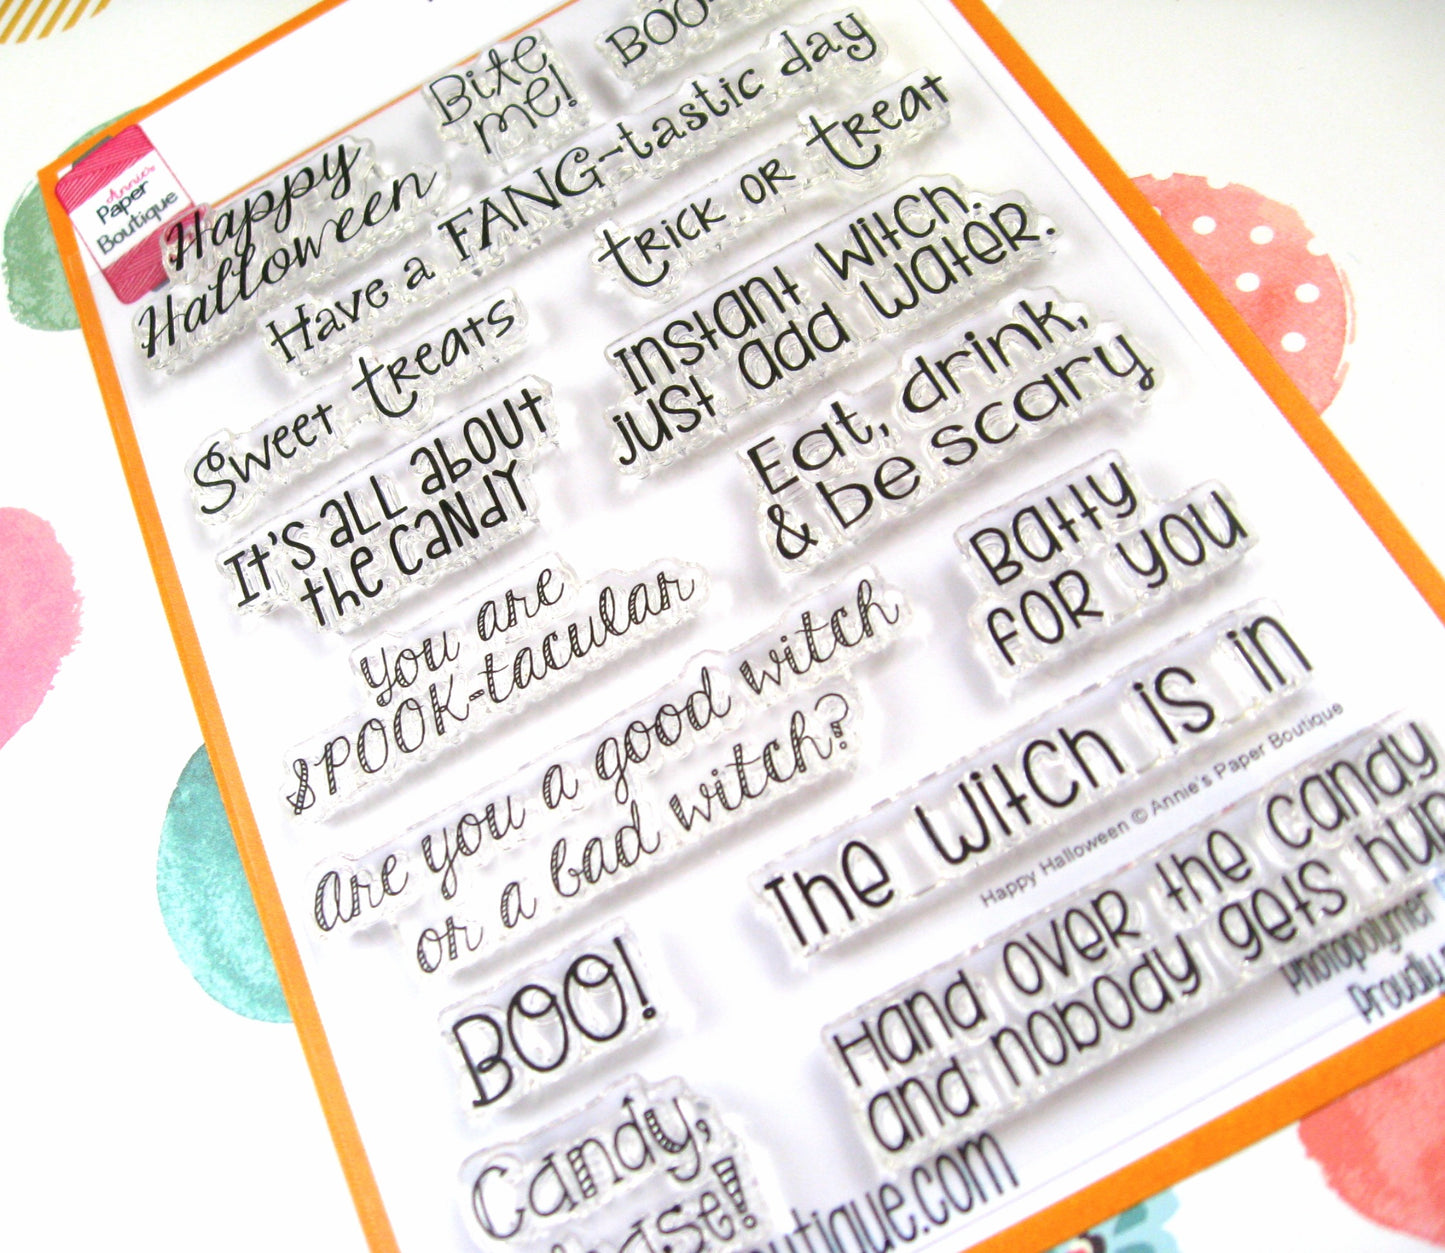 Bite
me!
BOO-
Annie's
Paper
Boutique
Happy
Halloween
Have a FANG-tastic day
trick or treat
Sweet treats
Instant witch.
just add water.
It's all about
the candy
Eat, drink,
& be scary
Batty
for you
you are
SPOOK-tacular
are you a good witch
or a bad witch?
The witch is in
Happy Halloween © Annie's Paper Boutique
BOO!
Hand over the candy
and nobody gets hur
Photopolymer
Proudly
Candy,
ase!
outique.com